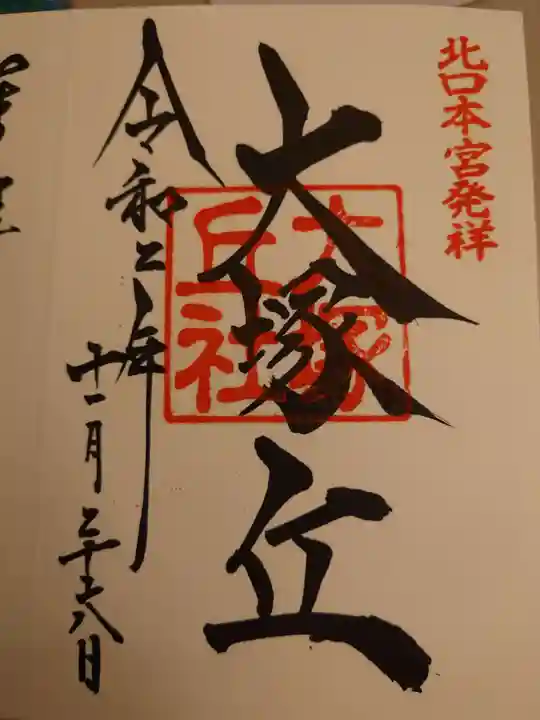 北口本宮発祥
大塚丘
大塚
丘社
令和二年
十一月二十八日